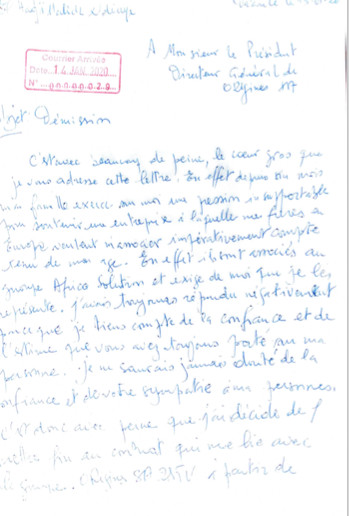 Courrier Arrivée
Date 14 JAN 2020
N° 00000029
A Monsieur le Président
Directeur Général de
Objet Démission
C'est avec beaucoup de peine, le cœur gros que
je vous adresse cette lettre. En effet depuis un mois
ma famille exerce sur moi une pression insupportable
pour soutenir une entreprise à laquelle mes frères
Europe veulent m'associer impérativement compte
tenu de mon age. En effet ils sont associés au
groupe Africa Solution et exige de moi que je les
représente. J'ai toujours répondu négativement
parce que je tiens compte de la confiance et de
l'estime que vous avez toujours porté sur ma
personne. Je ne saurais jamais douté de la
confiance et de votre sympathie à ma personne.
C'est donc avec peine que j'ai décidé de
mettre fin au contrat qui me lie avec
le groupe. à partir de